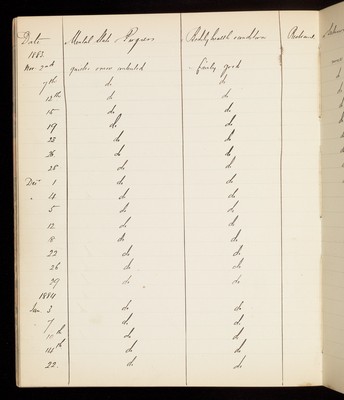 Date Mental State & Progress Bodily health & condition Restraint
1883
Nov. 2nd quiet fairly good
7th do do
12th do do
15 do do
19 do do
23 do do
26 do do
28 do do
Dec 1 do do
4 do do
5 do do
12 do do
18 do do
22 do do
26 do do
29 do do
1884
Jan. 3 do do
7 do do
11th do do
14th do do
22 do do